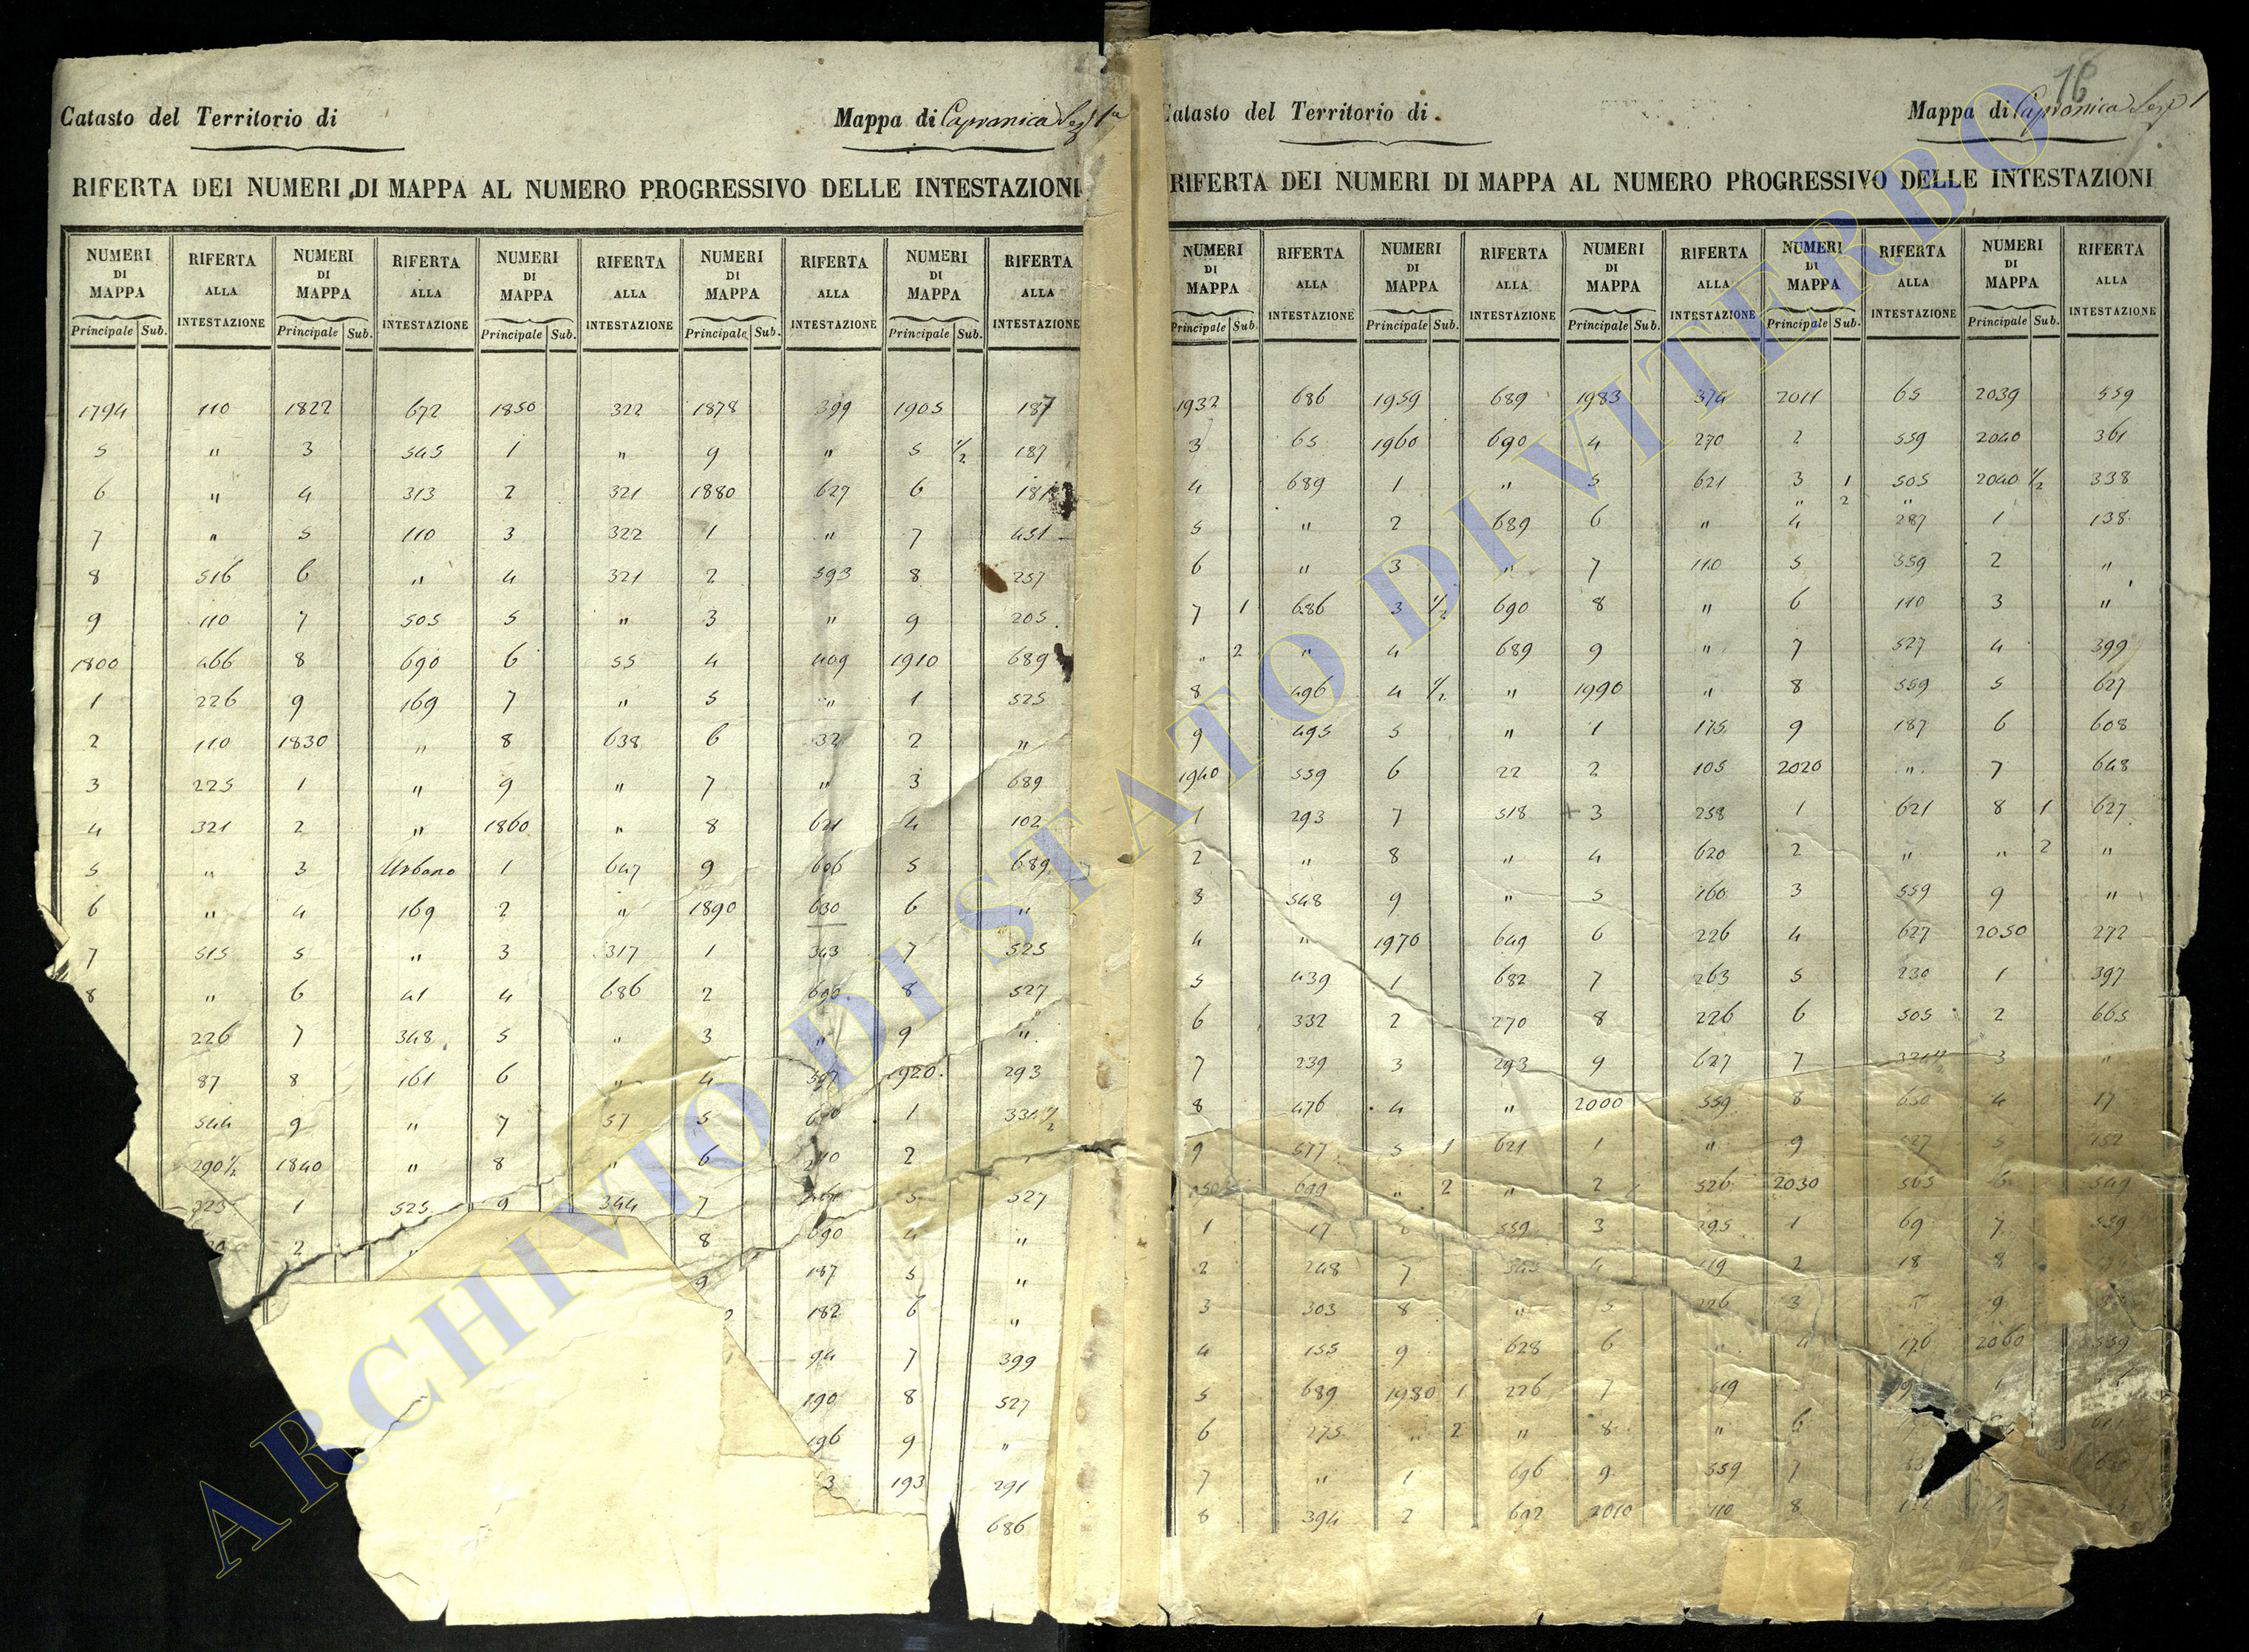 16
Catasto del Territorio di
Mappa di Capranica Sez 1a
RIFERTA DEI NUMERI DI MAPPA AL NUMERO PROGRESSIVO DELLE INTESTAZIONI
NUMERI DI MAPPA RIFERTA ALLA INTESTAZIONE NUMERI DI MAPPA RIFERTA ALLA INTESTAZIONE NUMERI DI MAPPA RIFERTA ALLA INTESTAZIONE NUMERI DI MAPPA RIFERTA ALLA INTESTAZIONE NUMERI DI MAPPA RIFERTA ALLA INTESTAZIONE
Principale Sub. Principale Sub. Principale Sub. Principale Sub. Principale Sub.
1794 110 1822 672 1850 322 1878 399 1905 187
5 " 3 545 1 " 9 " 5 1/2 187
6 " 4 313 2 321 1880 627 6
7 " 5 110 3 322 1 " 7 451
8 516 6 " 4 321 2 593 8 257
9 110 7 505 5 " 3 " 9 205
1800 466 8 690 6 55 4 409 1910 689
1 226 9 169 7 " 5 " 1 525
2 110 1830 " 8 638 6 32 2 "
3 225 1 " 9 " 7 " 3 689
4 321 2 " 1860 " 8 621 4 102
5 " 3 Urbano 1 647 9 606 5 689
6 " 4 169 2 " 1890 630 6 "
7 515 5 " 3 317 1 343 7 525
8 " 6 41 4 686 2 8 527
226 7 348 5 " 3 " 9 "
87 8 161 6 " 4 1920 293
544 9 " 7 57 5 1 331 1/2
290 1/2 1840 " 8 " 6 2 "
1 525 9 344 7 527
2 " 8 690 4 "
9 187 5 "
182 6 "
94 7 399
190 8 527
196 9 "
3 193 291
686
Catasto del Territorio di
Mappa di Capranica Sez 1
RIFERTA DEI NUMERI DI MAPPA AL NUMERO PROGRESSIVO DELLE INTESTAZIONI
NUMERI DI MAPPA RIFERTA ALLA INTESTAZIONE NUMERI DI MAPPA RIFERTA ALLA INTESTAZIONE NUMERI DI MAPPA RIFERTA ALLA INTESTAZIONE NUMERI DI MAPPA RIFERTA ALLA INTESTAZIONE NUMERI DI MAPPA RIFERTA ALLA INTESTAZIONE
Principale Sub. Principale Sub. Principale Sub. Principale Sub. Principale Sub.
1932 686 1959 689 1983 374 2011 65 2039 559
3 65 1960 690 4 270 2 559 2040 361
4 689 1 " 5 621 3 1 505 2040 1/2 338
" 2 "
5 " 2 689 6 " 4 287 1 138
6 " 3 " 7 110 5 559 2 "
7 1 686 3 1/2 690 8 " 6 110 3 "
" 2 " 4 689 9 " 7 527 4 399
8 496 4 1/2 " 1990 " 8 559 5 627
9 495 5 " 1 175 9 187 6 608
1940 559 6 22 2 105 2020 " 7 648
1 293 7 518 + 3 258 1 621 8 1 627
2 " 8 " 4 620 2 " " 2 "
3 548 9 " 5 160 3 559 9 "
4 " 1970 649 6 226 4 627 2050 272
5 439 1 682 7 263 5 230 1 397
6 332 2 270 8 226 6 505 2 665
7 239 3 293 9 627 7 3 "
8 476 4 " 2000 559 8 630 4 17
9 577 5 1 621 1 " 9 527 5 182
699 " 2 " 2 526 2030 565 6 549
1 17 6 559 3 295 1 69 7 559
2 248 7 4 2 18 8
3 303 8 " 5 226 3 " 9
4 155 9 628 6 " 4 176 2060 559
5 689 1980 1 226 7
6 275 " 2 " 8 " 6
7 " 1 696 9 559 7
8 394 2 692 2010 110 8
ARCHIVIO DI STATO DI VITERBO